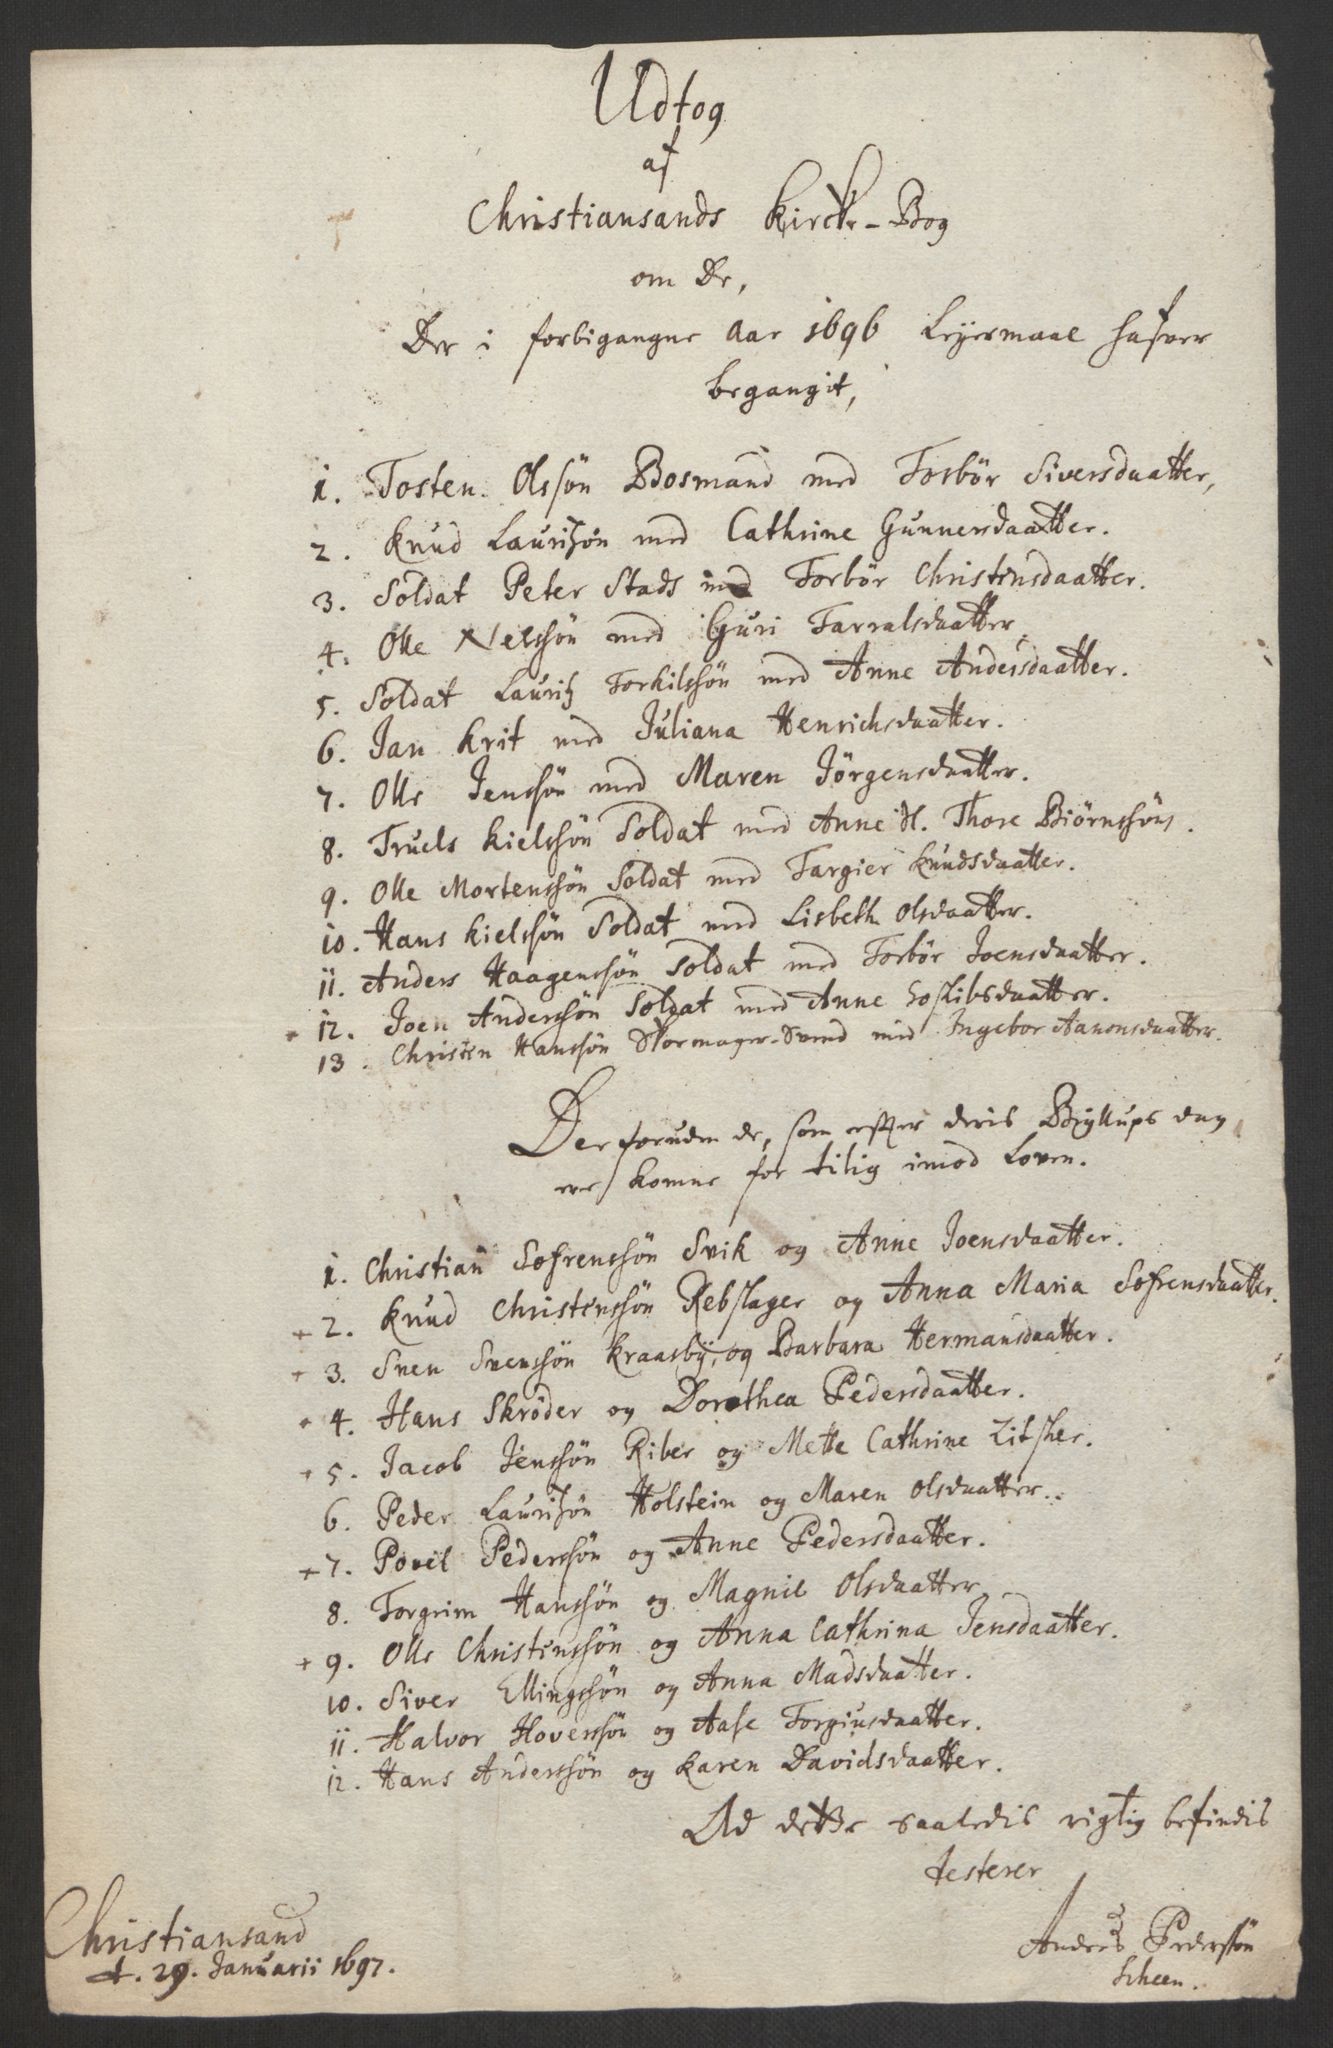 Udtog
af
Christiansands Kircke-Bog
om De,
Der i forbigangne Aar 1696 Leyermaal hafver
begangit,
1. Tosten Olssön Bosmand med Torbör Siversdaatter,
2. Knud Lauritzön med Cathrine Gunnersdaatter.
3. Soldat Peter Stads med Torbör Christensdaatter.
4. Olle Nelssön med Guri Tarralsdaatter,
5. Soldat Lauritz Torkilssön med Anne Andersdaatter.
6. Jan Krit med Juliana Henrichsdaatter.
7. Olle Jenssön med Maren Jörgensdaatter.
8. Truels Kielssön Soldat med Anne Sl. Thore Biörnssöns.
9. Olle Mortenssön Soldat med Targier Knudsdaatter.
10. Hans Kielssön Soldat med Lisbeth Olsdaatter.
11. Anders Haagenssön Soldat med Torbör Joensdaatter.
12. Joen Anderssön Soldat med Anne daatter.
13. Christen Hanssön Skormager-Svend med Ingebor Aanonsdaatter.
Der foruden de, som efter deris Bryllups dag
ere komne for tilig imod Loven.
1. Christian Sofrenssön Svik og Anne Joensdaatter.
+ 2. Knud Christenssön Rebslager og Anna Maria Sofrensdaatter.
+ 3. Sven Svenssön Kraasbÿ, og Barbara Hermansdaatter.
+ 4. Hans Skröder og Dorothea Pedersdaatter.
+ 5. Jacob Jenssön Riber og Mette Cathrine
6. Peder Lauritzön Holstein og Maren Olsdaatter.
+ 7. Povel Pederssön og Anne Pedersdaatter.
8. Torgrim Hanssön og Magnil Olsdaatter
+ 9. Olle Christenssön og Anna Cathrina Jensdaatter.
10. Siver Ellingssön og Anna Madsdaatter.
11. Halvor Hoverssön og Aase Torgiusdaatter.
12. Hans Anderssön og Karen Davidsdaatter.
Ad dette saaledis rigtig befindis
testerer
Anders Pederssön
Scheen.
Christiansand
d. 29. Januarii 1697.